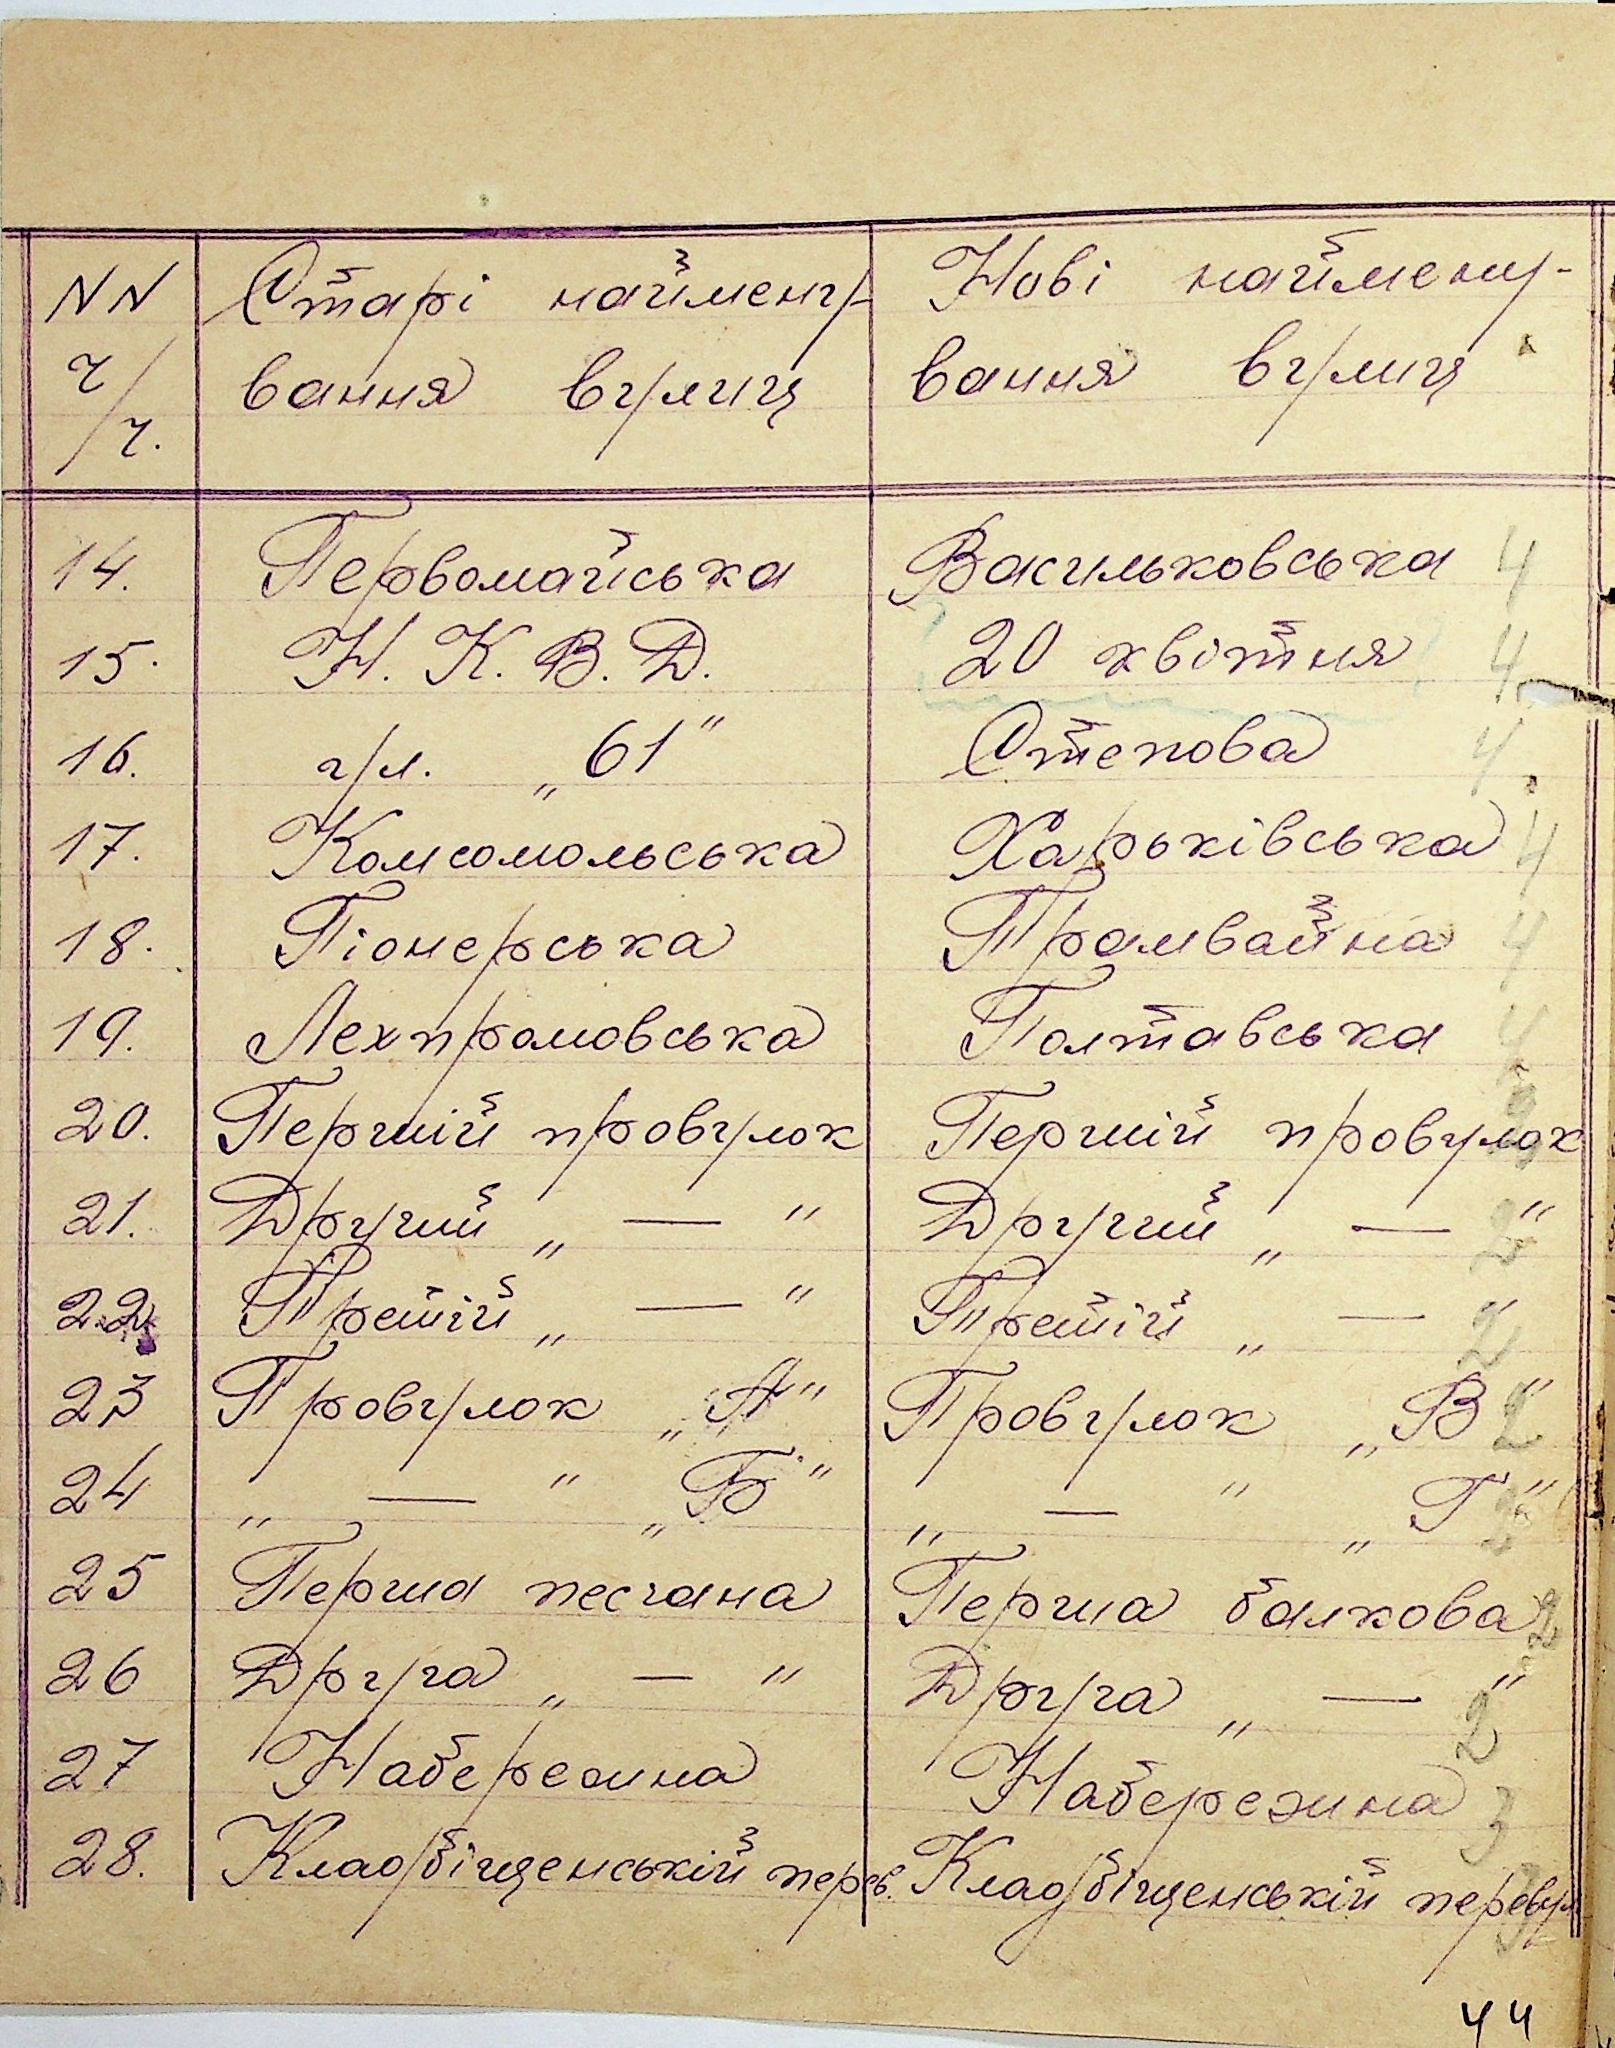 NN Старі наймену- Нові наймену-
ч/ч. вання вулиц вання вулиц
14. Первомайська Васильковська 4
15. Н. К. В. Д. 20 квітня 4
16. ул. „61" Степова 4
17. Комсомольська Харьківська 4
18. Піонерська Трамвайна 4
19. Лехпромовська Полтавська 4
20. Першій провулок Першій провулок
21. Другий „ — " Другий „ — " 2
22 Третій „ — " Третій „ — " 2
23 Провулок „А" Провулок „В" 2
24 „ — " „Б" „ — " „Г" 2
25 Перша песчана Перша балкова 2
26 Друга „ — " Друга „ — " 2
27 Набережна Набережна 3
28. Кладбіщенській перев. Кладбіщенській перевул
44